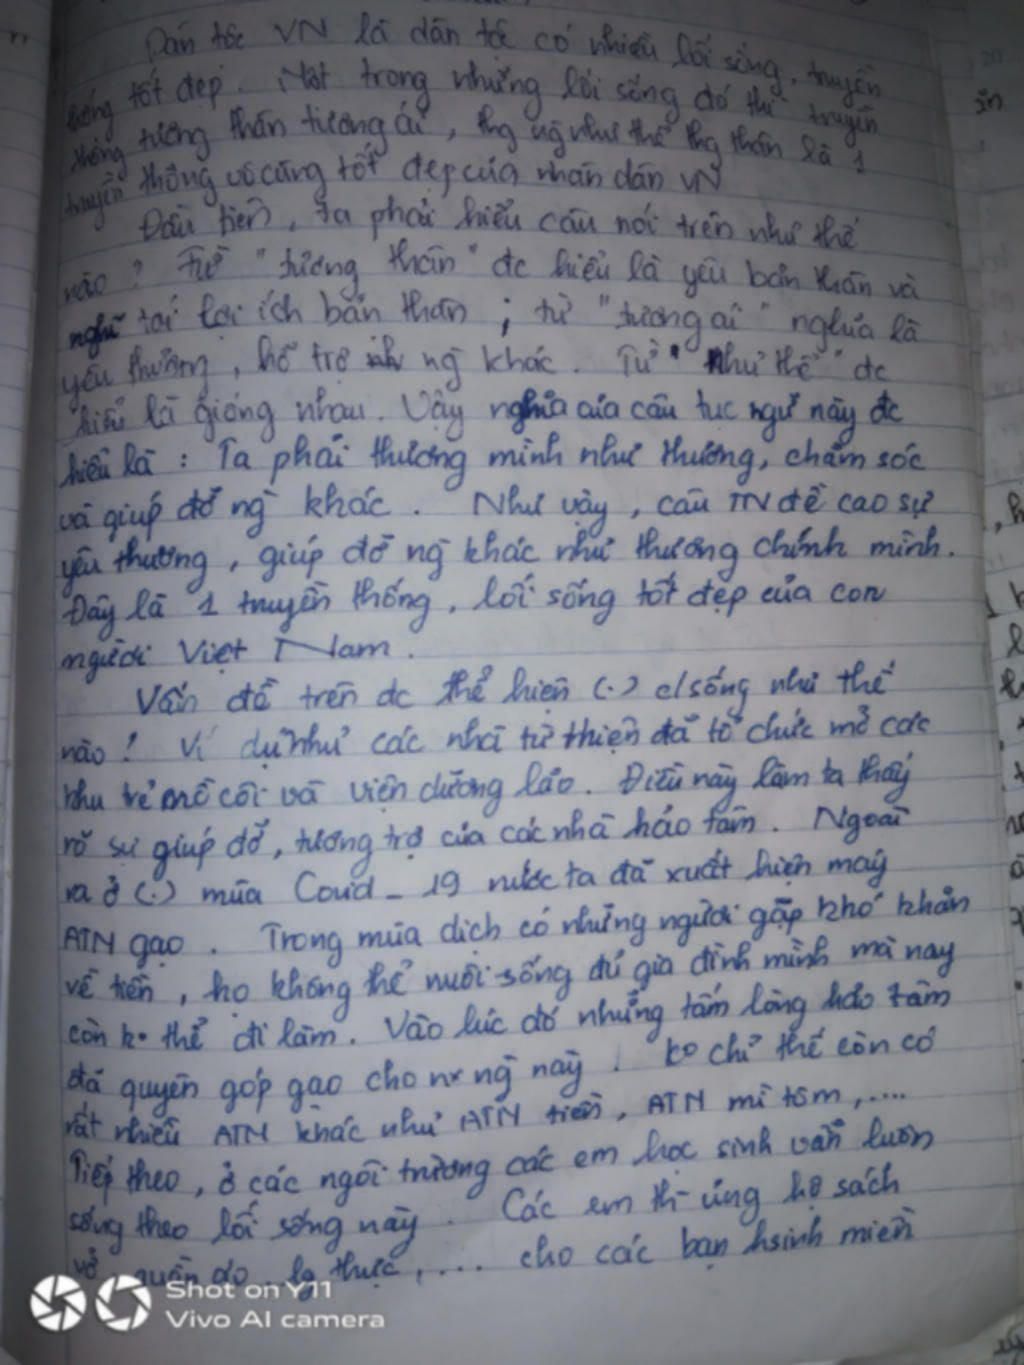 Dân tộc VN là dân tộc có nhiều lối sống, truyền
thống tốt đẹp. Một trong những lối sống đó thì truyền
thống tương thân tương ái, thg ng như thể thg thân là 1
truyền thống vô cùng tốt đẹp của nhân dân VN
Đầu tiên, ta phải hiểu câu nói trên như thế
nào? Từ "tương thân" đc hiểu là yêu bản thân và
nghĩ tới lợi ích bản thân; từ "tương ái" nghĩa là
yêu thương, hỗ trợ ng khác. Từ "như thể" đc
hiểu là giống nhau. Vậy nghĩa của câu tục ngữ này đc
hiểu là: Ta phải thương mình như thương, chăm sóc
và giúp đỡ ng khác. Như vậy, câu TN đề cao sự
yêu thương, giúp đỡ ng khác như thương chính mình.
Đây là 1 truyền thống, lối sống tốt đẹp của con
người Việt Nam.
Vấn đề trên dc thể hiện (.) c/sống như thế
nào! Ví dụ như các nhà từ thiện đã tổ chức mở các
khu trẻ mồ côi và viện dưỡng lão. Điều này làm ta thấy
rõ sự giúp đỡ, tương trợ của các nhà hảo tâm. Ngoài
ra ở (.) mùa Covid_19 nước ta đã xuất hiện máy
ATN gạo. Trong mùa dịch có những người gặp khó khăn
về tiền, họ không thể nuôi sống đủ gia đình mình mà nay
còn ko thể đi làm. Vào lúc đó những tấm lòng hảo tâm
đã quyên góp gạo cho nx ng này! ko chỉ thế còn có
rất nhiều ATN khác như ATN tiền, ATN mì tôm,....
Tiếp theo, ở các ngôi trường các em học sinh vẫn luôn
sống theo lối sống này. Các em th- ủng hộ sách
vở, quần áo, lg thực,... cho các bạn hsinh miền
Shot on Y11
Vivo AI camera